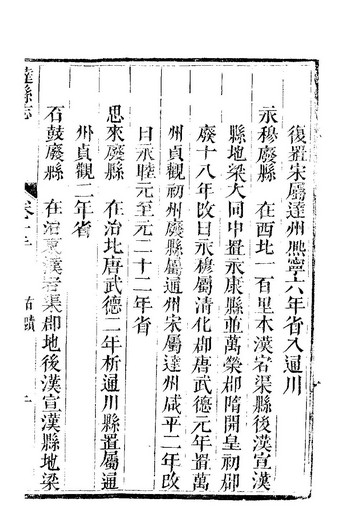 復置宋屬達州熙寧六年省入通川
永穆廢縣 在西北一百里本漢宕渠縣後漢宣漢
縣地梁大同中置永康縣並萬榮郡隋開皇初郡
廢十八年改曰永穆屬清化郡唐武德元年置萬
州貞觀初州廢縣屬通州宋屬達州咸平二年改
曰永睦元至元二十二年省
思來廢縣 在治北唐武德二年析通川縣置屬通
州貞觀二年省
石鼓廢縣 在治東漢宕渠郡地後漢宣漢縣地梁
達縣志 卷十 古蹟